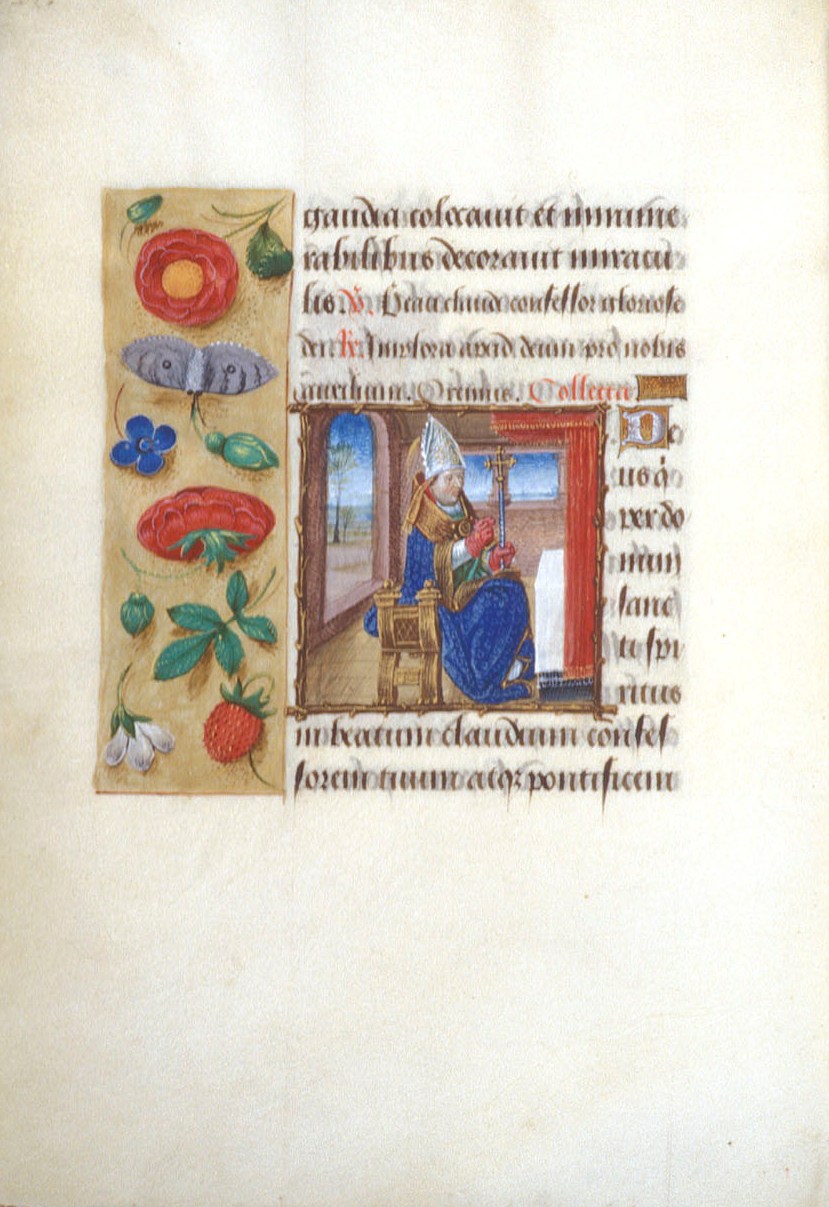 gaudia colocauit et innume
rabilibus decorauit miracu
lis ℣. Beate claudi confessor gloriose
dei. ℟. Implora apud deum pro nobis
auxilium. Oremus. Collecta
De
us q̇
per do
num
sanc
ti spi
ritus
in beatum claudium confes
sorem tuum atqꝫ pontificem